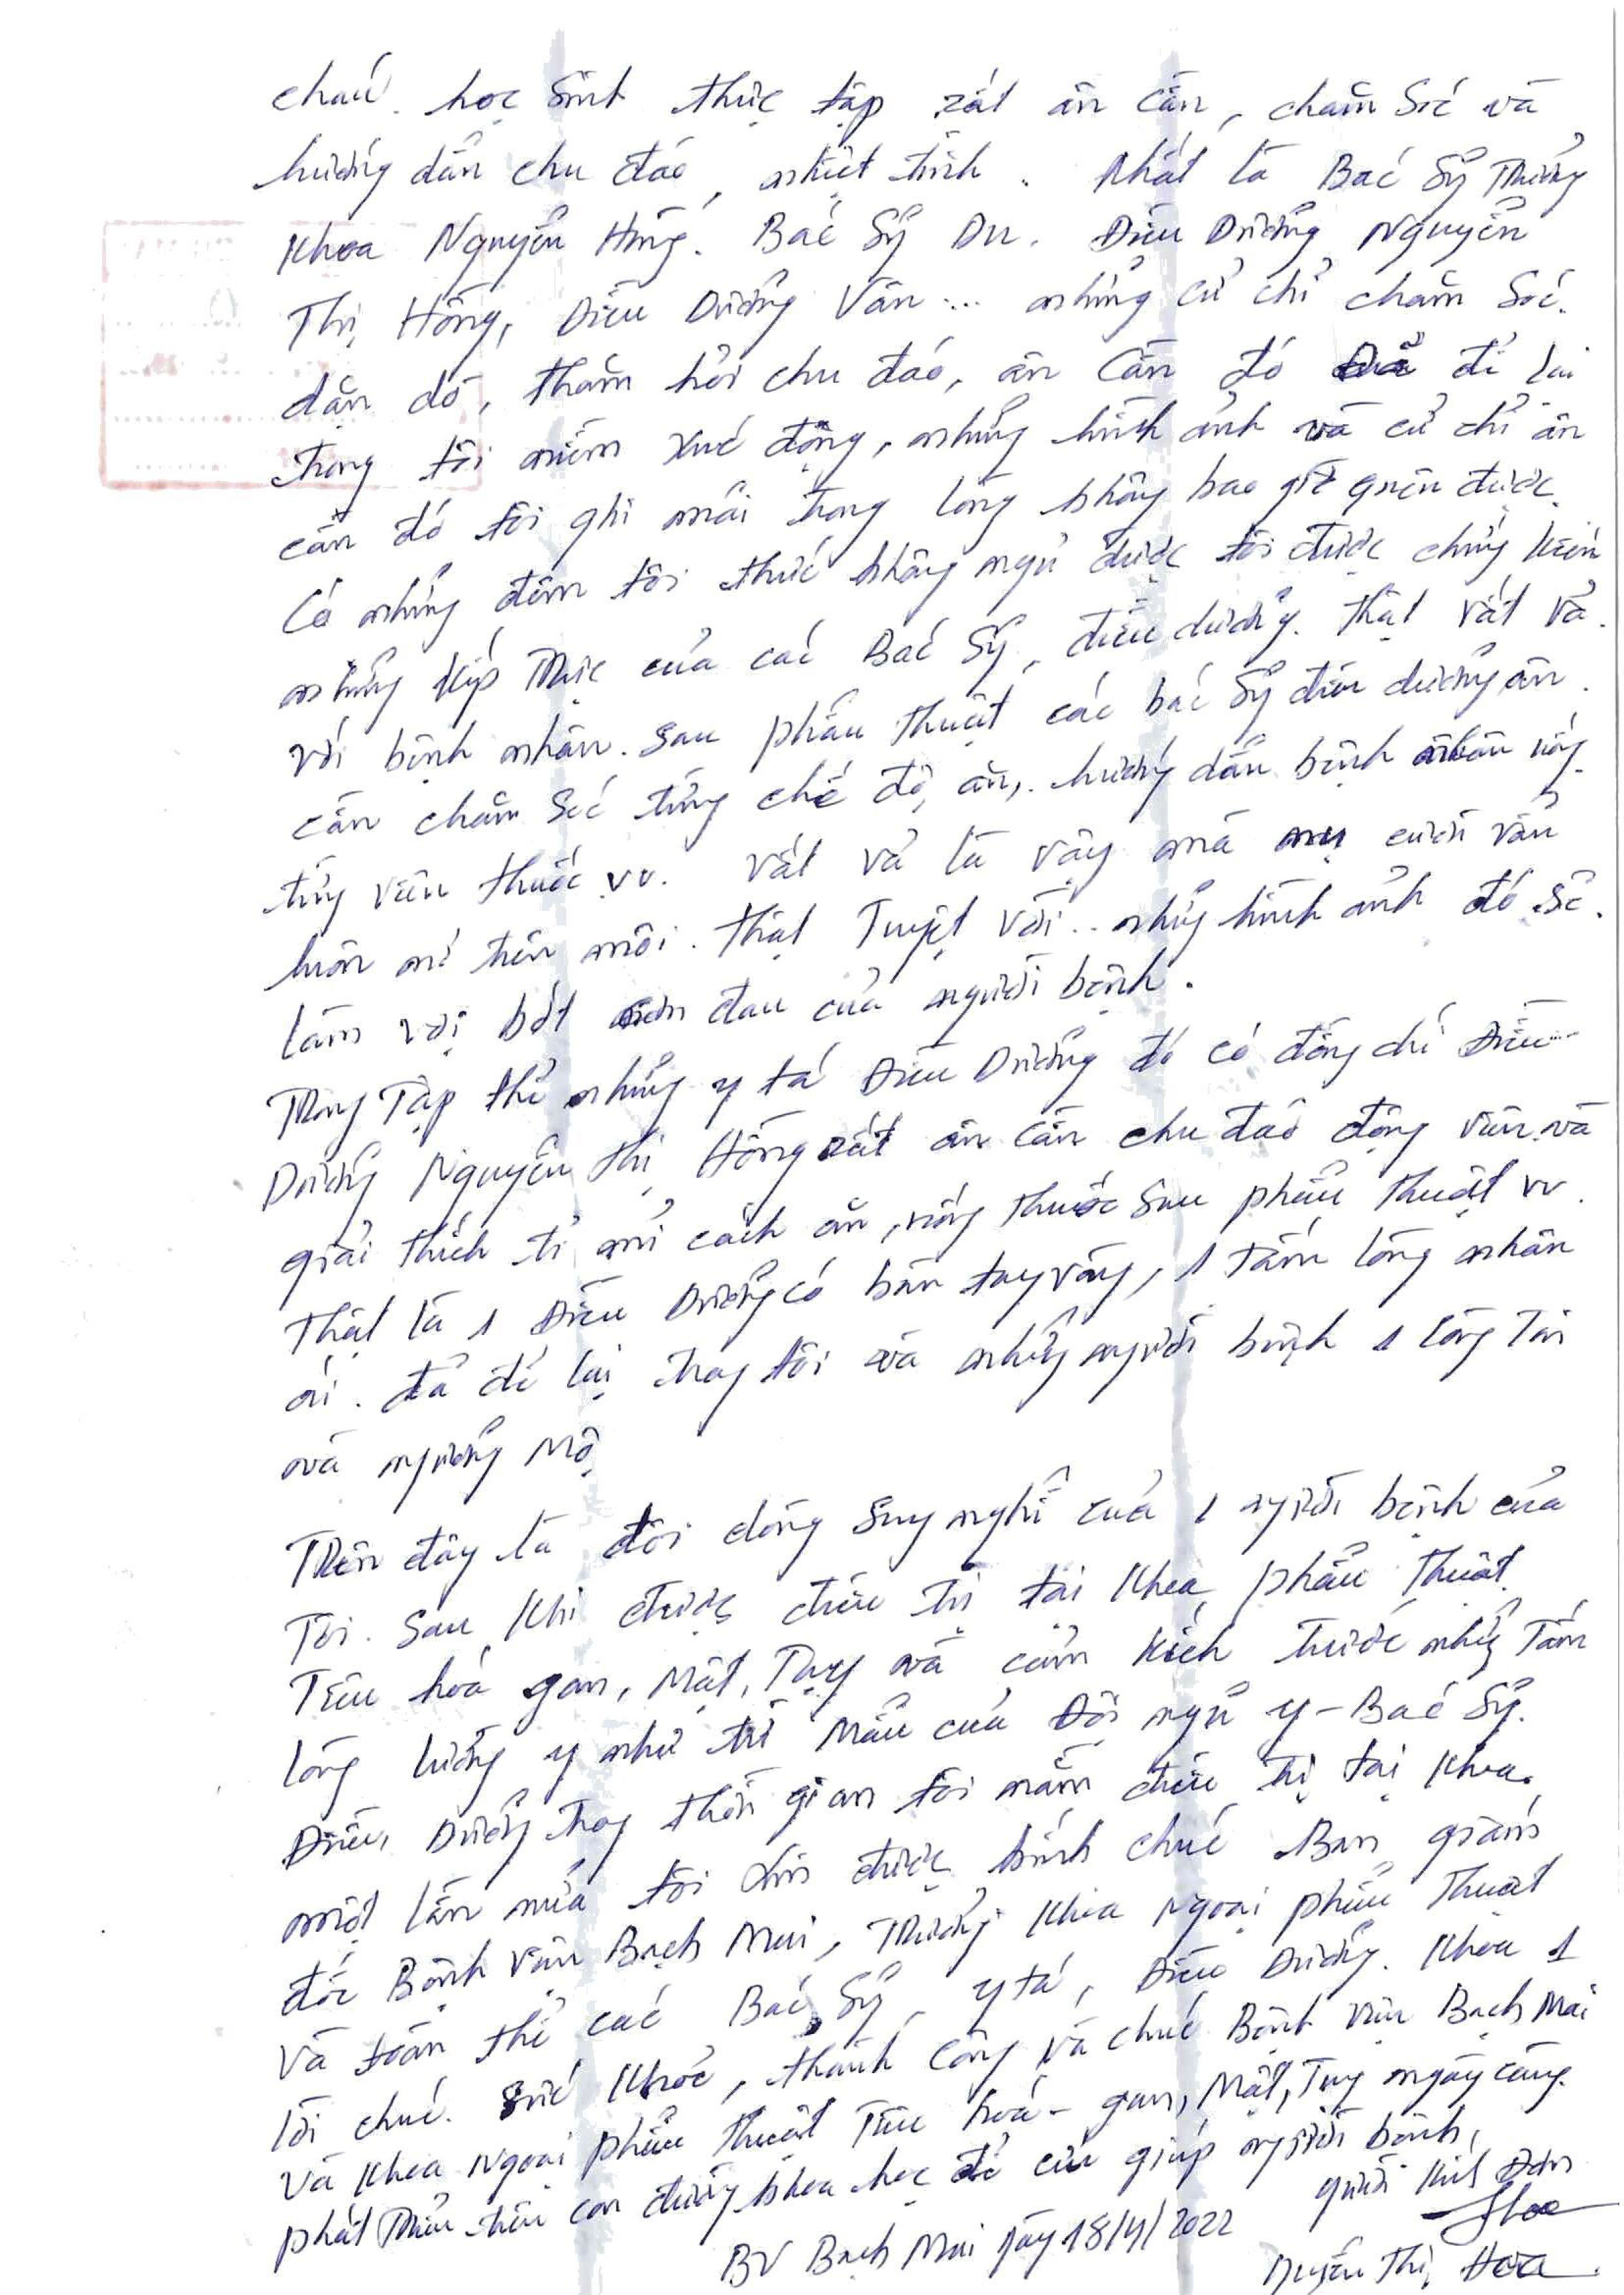 cháu. học sinh thực tập rất ân cần, chăm sóc và
hướng dẫn chu đáo, nhiệt tình. Nhất là Bác Sỹ Trưởng
Khoa Nguyễn Hùng. Bác Sỹ Du. Điều Dưỡng Nguyễn
Thị Hồng, Điều Dưỡng Vân... những cử chỉ chăm sóc.
dặn dò, thăm hỏi chu đáo, ân cần đó đã để lại
trong tôi niềm xúc động, những hình ảnh và cử chỉ ân
cần đó tôi ghi mãi trong lòng không bao giờ quên được.
Có những đêm tôi thức không ngủ được tôi được chứng kiến
những kíp trực của các Bác Sỹ, điều dưỡng. thật vất vả.
với bệnh nhân. Sau phẫu thuật các bác sỹ điều dưỡng ân
cần chăm sóc từng chế độ ăn, hướng dẫn bệnh nhân uống
từng viên thuốc vv. Vất vả là vậy mà nụ cười vẫn
luôn nở trên môi. thật Tuyệt vời.. những hình ảnh đó sẽ.
làm vơi bớt cơn đau của người bệnh.
Trong Tập thể những y tá Điều Dưỡng đó có đồng chí Điều
Dưỡng Nguyễn Thị Hồng rất ân cần chu đáo động viên và
giải thích tỉ mỉ cách ăn, uống thuốc sau phẫu thuật vv.
Thật là 1 Điều Dưỡng có bàn tay vàng, 1 tấm lòng nhân
ái. đã để lại trong tôi và những người bệnh 1 lòng
và ngưỡng Mộ
Trên đây là đôi dòng suy nghĩ của 1 người bệnh của
Tôi. Sau khi được điều trị tại Khoa phẫu thuật.
Tiêu hóa gan, Mật, Tụy và cảm kích trước những Tấm
lòng lương y như từ Mẫu của Đội ngũ y - Bác Sỹ.
Điều, Dưỡng trong thời gian tôi nằm điều trị tại Khoa.
một lần nữa tôi xin được kính chúc Ban giám
đốc Bệnh viện Bạch Mai, Trưởng Khoa Ngoại phẫu thuật
và toàn thể các Bác Sỹ, y tá, Điều Dưỡng. Khoa 1
lời chúc. sức khỏe, thành công và chúc Bệnh viện Bạch Mai
Và Khoa Ngoại phẫu thuật Tiêu hoá - gan, Mật, Tụy ngày càng.
phát Triển trên con đường khoa học để cứu giúp người bệnh,
BV Bạch Mai ngày 18/4/2022
người Viết Đơn
Hoa
Nguyễn Thị Hoa.